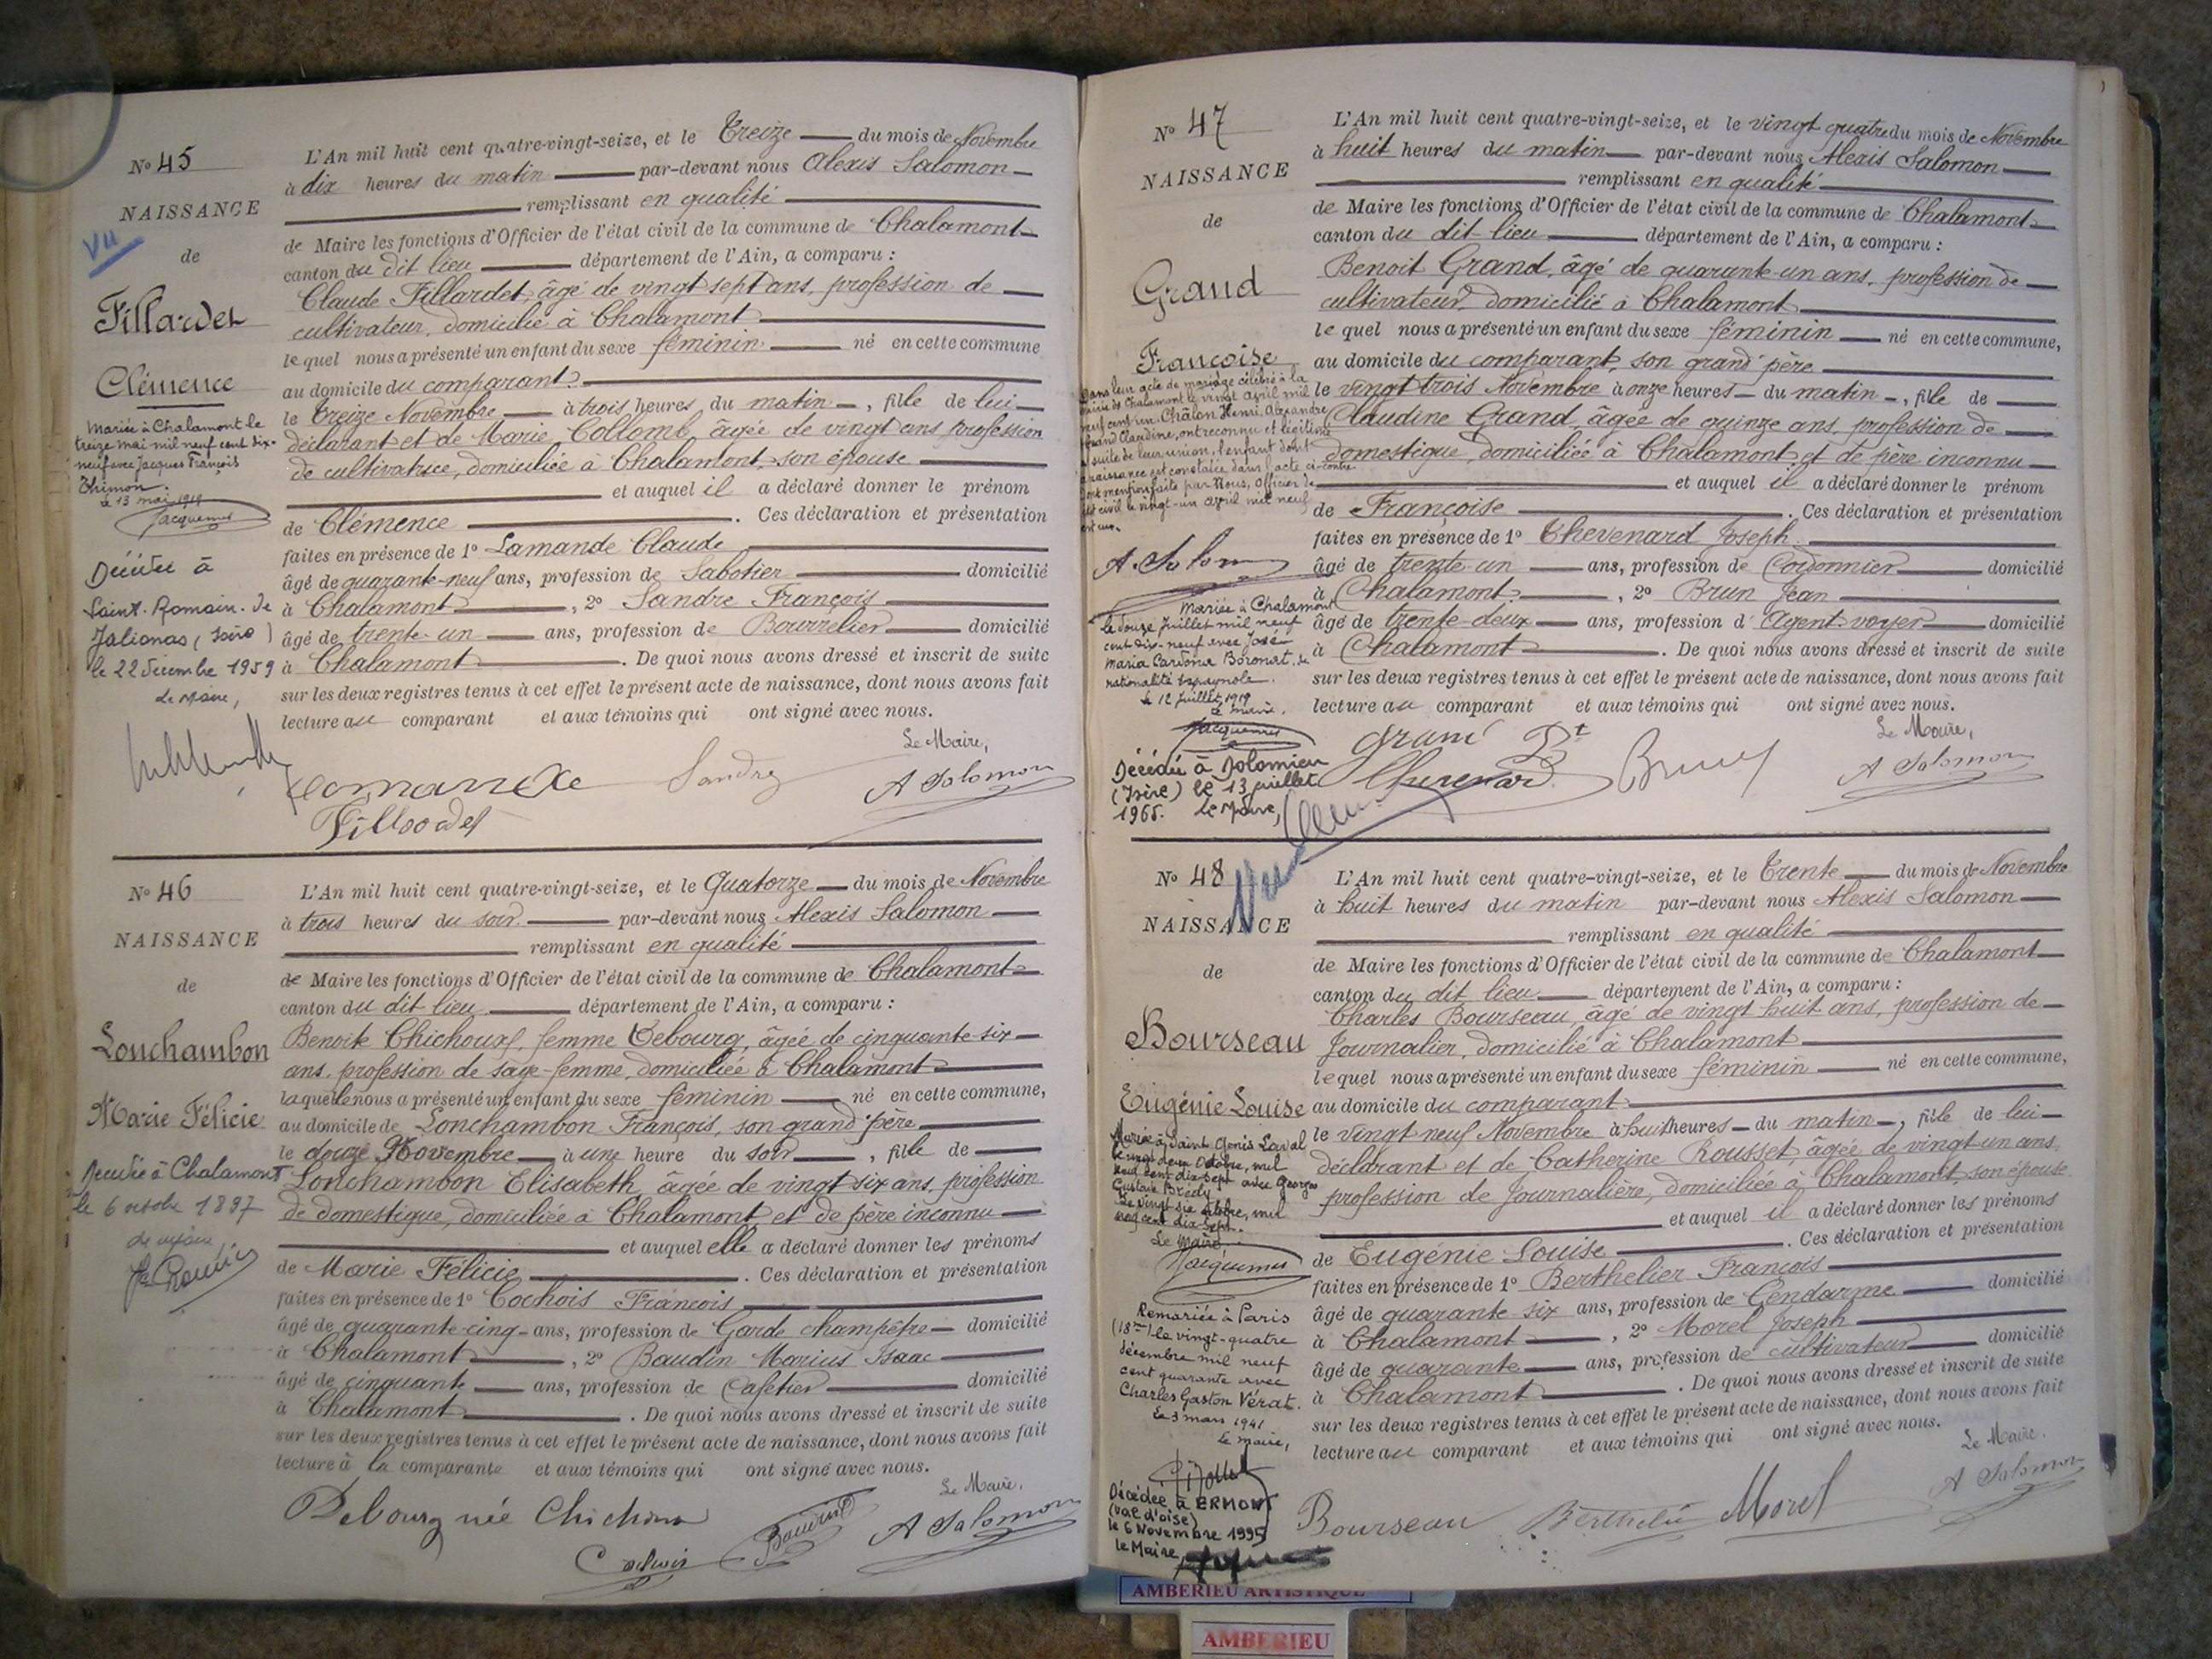 N° 45
NAISSANCE
vu
de
Fillardet
Clémence
Mariée à Chalamont le
treize mai mil neuf cent dix-
neuf avec Jacques François
Thimon.
le 13 mai 1919
Jacquemus
Décédée à
Saint-Romain-de
Jalionas (Isère)
le 22 décembre 1959
Le Maire,
L'An mil huit cent quatre-vingt-seize, et le Treize du mois de Novembre
à dix heures du matin par-devant nous Alexis Salomon
remplissant en qualité
de Maire les fonctions d'Officier de l'état civil de la commune de Chalamont
canton du dit lieu département de l'Ain, a comparu :
Claude Fillardet, âgé de vingt sept ans, profession de
cultivateur, domicilié à Chalamont
lequel nous a présenté un enfant du sexe féminin né en cette commune
au domicile du comparant
le treize Novembre à trois heures du matin, fille de lui
déclarant et de Marie Collomb, âgée de vingt ans, profession
de cultivatrice, domiciliée à Chalamont, son épouse
et auquel il a déclaré donner le prénom
de Clémence . Ces déclaration et présentation
faites en présence de 1° Lamande Claude
âgé de quarante-neuf ans, profession de Sabotier domicilié
à Chalamont, 2° Sandre François
âgé de trente-un ans, profession de Bourrelier domicilié
à Chalamont . De quoi nous avons dressé et inscrit de suite
sur les deux registres tenus à cet effet le présent acte de naissance, dont nous avons fait
lecture au comparant et aux témoins qui ont signé avec nous.
Le Maire,
Lamande Sandre A Salomon
Fillardet
N° 46
NAISSANCE
de
Lonchambon
Marie Félicie
Décédée à Chalamont
le 6 octobre 1897
Le maire
L'An mil huit cent quatre-vingt-seize, et le Quatorze du mois de Novembre
à trois heures du soir par-devant nous Alexis Salomon
remplissant en qualité
de Maire les fonctions d'Officier de l'état civil de la commune de Chalamont
canton du dit lieu département de l'Ain, a comparu :
Benoite Chichoux, femme Debourg, âgée de cinquante-six
ans, profession de sage-femme, domiciliée à Chalamont
laquelle nous a présenté un enfant du sexe féminin né en cette commune,
au domicile de Lonchambon François, son grand'père
le douze Novembre à une heure du soir, fille de
Lonchambon Elisabeth, âgée de vingt six ans, profession
de domestique, domiciliée à Chalamont et de père inconnu
et auquel elle a déclaré donner les prénoms
de Marie Félicie . Ces déclaration et présentation
faites en présence de 1° Cochois François
âgé de quarante-cinq ans, profession de Garde champêtre domicilié
à Chalamont, 2° Baudin Marius Isaac
âgé de cinquante ans, profession de Cafetier domicilié
à Chalamont . De quoi nous avons dressé et inscrit de suite
sur les deux registres tenus à cet effet le présent acte de naissance, dont nous avons fait
lecture à la comparante et aux témoins qui ont signé avec nous.
Le Maire,
Debourg née Chichoux
Cochois Baudin A Salomon
N° 47
NAISSANCE
de
Grand
Françoise
Dans leur acte de mariage célébré à la
mairie de Chalamont le vingt avril mil
neuf cent un Châlon Henri Alexandre
Grand Claudine, ont reconnu et légitimé
à suite de leur union, l'enfant dont
la naissance est constatée dans l'acte ci-contre
dont mention faite par Nous, Officier de
l'état civil le vingt-un avril mil neuf
cent un.
A. Salomon
Mariée à Chalamont
le douze juillet mil neuf
cent dix-neuf avec José
Maria Cardona Boronat, de
nationalité espagnole.
le 12 juillet 1919
Le maire,
Jacquemus
Décédée à Dolomieu
(Isère) le 13 juillet
1965. Le Maire,
L'An mil huit cent quatre-vingt-seize, et le vingt quatre du mois de Novembre
à huit heures du matin par-devant nous Alexis Salomon
remplissant en qualité
de Maire les fonctions d'Officier de l'état civil de la commune de Chalamont
canton du dit lieu département de l'Ain, a comparu :
Benoit Grand, âgé de quarante-un ans, profession de
cultivateur, domicilié à Chalamont
lequel nous a présenté un enfant du sexe féminin né en cette commune,
au domicile du comparant, son grand'père
le vingt trois Novembre à onze heures du matin, fille de
Claudine Grand, âgée de quinze ans, profession de
domestique, domiciliée à Chalamont et de père inconnu
et auquel il a déclaré donner le prénom
de Françoise . Ces déclaration et présentation
faites en présence de 1° Chevenard Joseph
âgé de trente-un ans, profession de Cordonnier domicilié
à Chalamont, 2° Brun Jean
âgé de trente-deux ans, profession d'Agent-voyer domicilié
à Chalamont . De quoi nous avons dressé et inscrit de suite
sur les deux registres tenus à cet effet le présent acte de naissance, dont nous avons fait
lecture au comparant et aux témoins qui ont signé avec nous.
Le Maire,
Grand Bt Brun
Chevenard A Salomon
N° 48
NAISSANCE
de
Bourseau
Eugénie Louise
Mariée à Saint Genis Laval
le vingt deux Octobre, mil
neuf cent dix sept avec Georges
Gustave Brédy
Le vingt six octobre, mil
neuf cent dix-sept.
Le Maire,
Jacquemus
Remariée à Paris
(18me) le vingt-quatre
décembre mil neuf
cent quarante avec
Charles Gaston Vérat.
Le 3 mars 1941
Le maire,
Décédée à ERMONT
(Val d'oise)
le 6 Novembre 1995
le Maire,
L'An mil huit cent quatre-vingt-seize, et le Trente du mois de Novembre
à huit heures du matin par-devant nous Alexis Salomon
remplissant en qualité
de Maire les fonctions d'Officier de l'état civil de la commune de Chalamont
canton du dit lieu département de l'Ain, a comparu :
Charles Bourseau, âgé de vingt huit ans, profession de
Journalier, domicilié à Chalamont
lequel nous a présenté un enfant du sexe féminin né en cette commune,
au domicile du comparant
le vingt-neuf Novembre à huit heures du matin, fille de lui
déclarant et de Catherine Rousset, âgée de vingt un ans,
profession de Journalière, domiciliée à Chalamont, son épouse
et auquel il a déclaré donner les prénoms
de Eugénie Louise . Ces déclaration et présentation
faites en présence de 1° Berthelier François
âgé de quarante six ans, profession de Gendarme domicilié
à Chalamont, 2° Morel Joseph
âgé de quarante ans, profession de cultivateur domicilié
à Chalamont . De quoi nous avons dressé et inscrit de suite
sur les deux registres tenus à cet effet le présent acte de naissance, dont nous avons fait
lecture au comparant et aux témoins qui ont signé avec nous.
Le Maire,
Bourseau Berthelier Morel A Salomon
AMBERIEU ARTISTIQUE
AMBERIEU